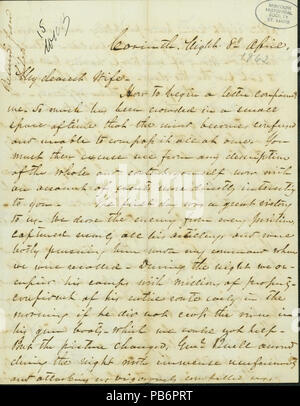 15
MISSOURI
HISTORICAL
SOCIETY
ST. LOUIS
Corinth, Night 8th April,
1862
My dearest Wife
How to begin a letter confounds
me. So much has been crowded in a small
space of time that the mind becomes confused
and unable to compass it all at once. You
must then excuse me from any description
of this whole and content yourself now with
an account of what is more directly interesting
to you - The first day was a great victory
to us. We drove the enemy from every position
captured nearly all his artillery and were
hotly pursuing him under my command when
we were recalled - During the night we oc-
cupied his camps with millions of property -
confident of his entire rout early in the
morning if he did not cross the river in
his gun boats - which we could not help -
But the picture changed, Genl. Buell arrived
during the night with immense reinforcements
and attacking us vigorously compelled us
alamy
Image ID: PB6PRT
www.alamy.com